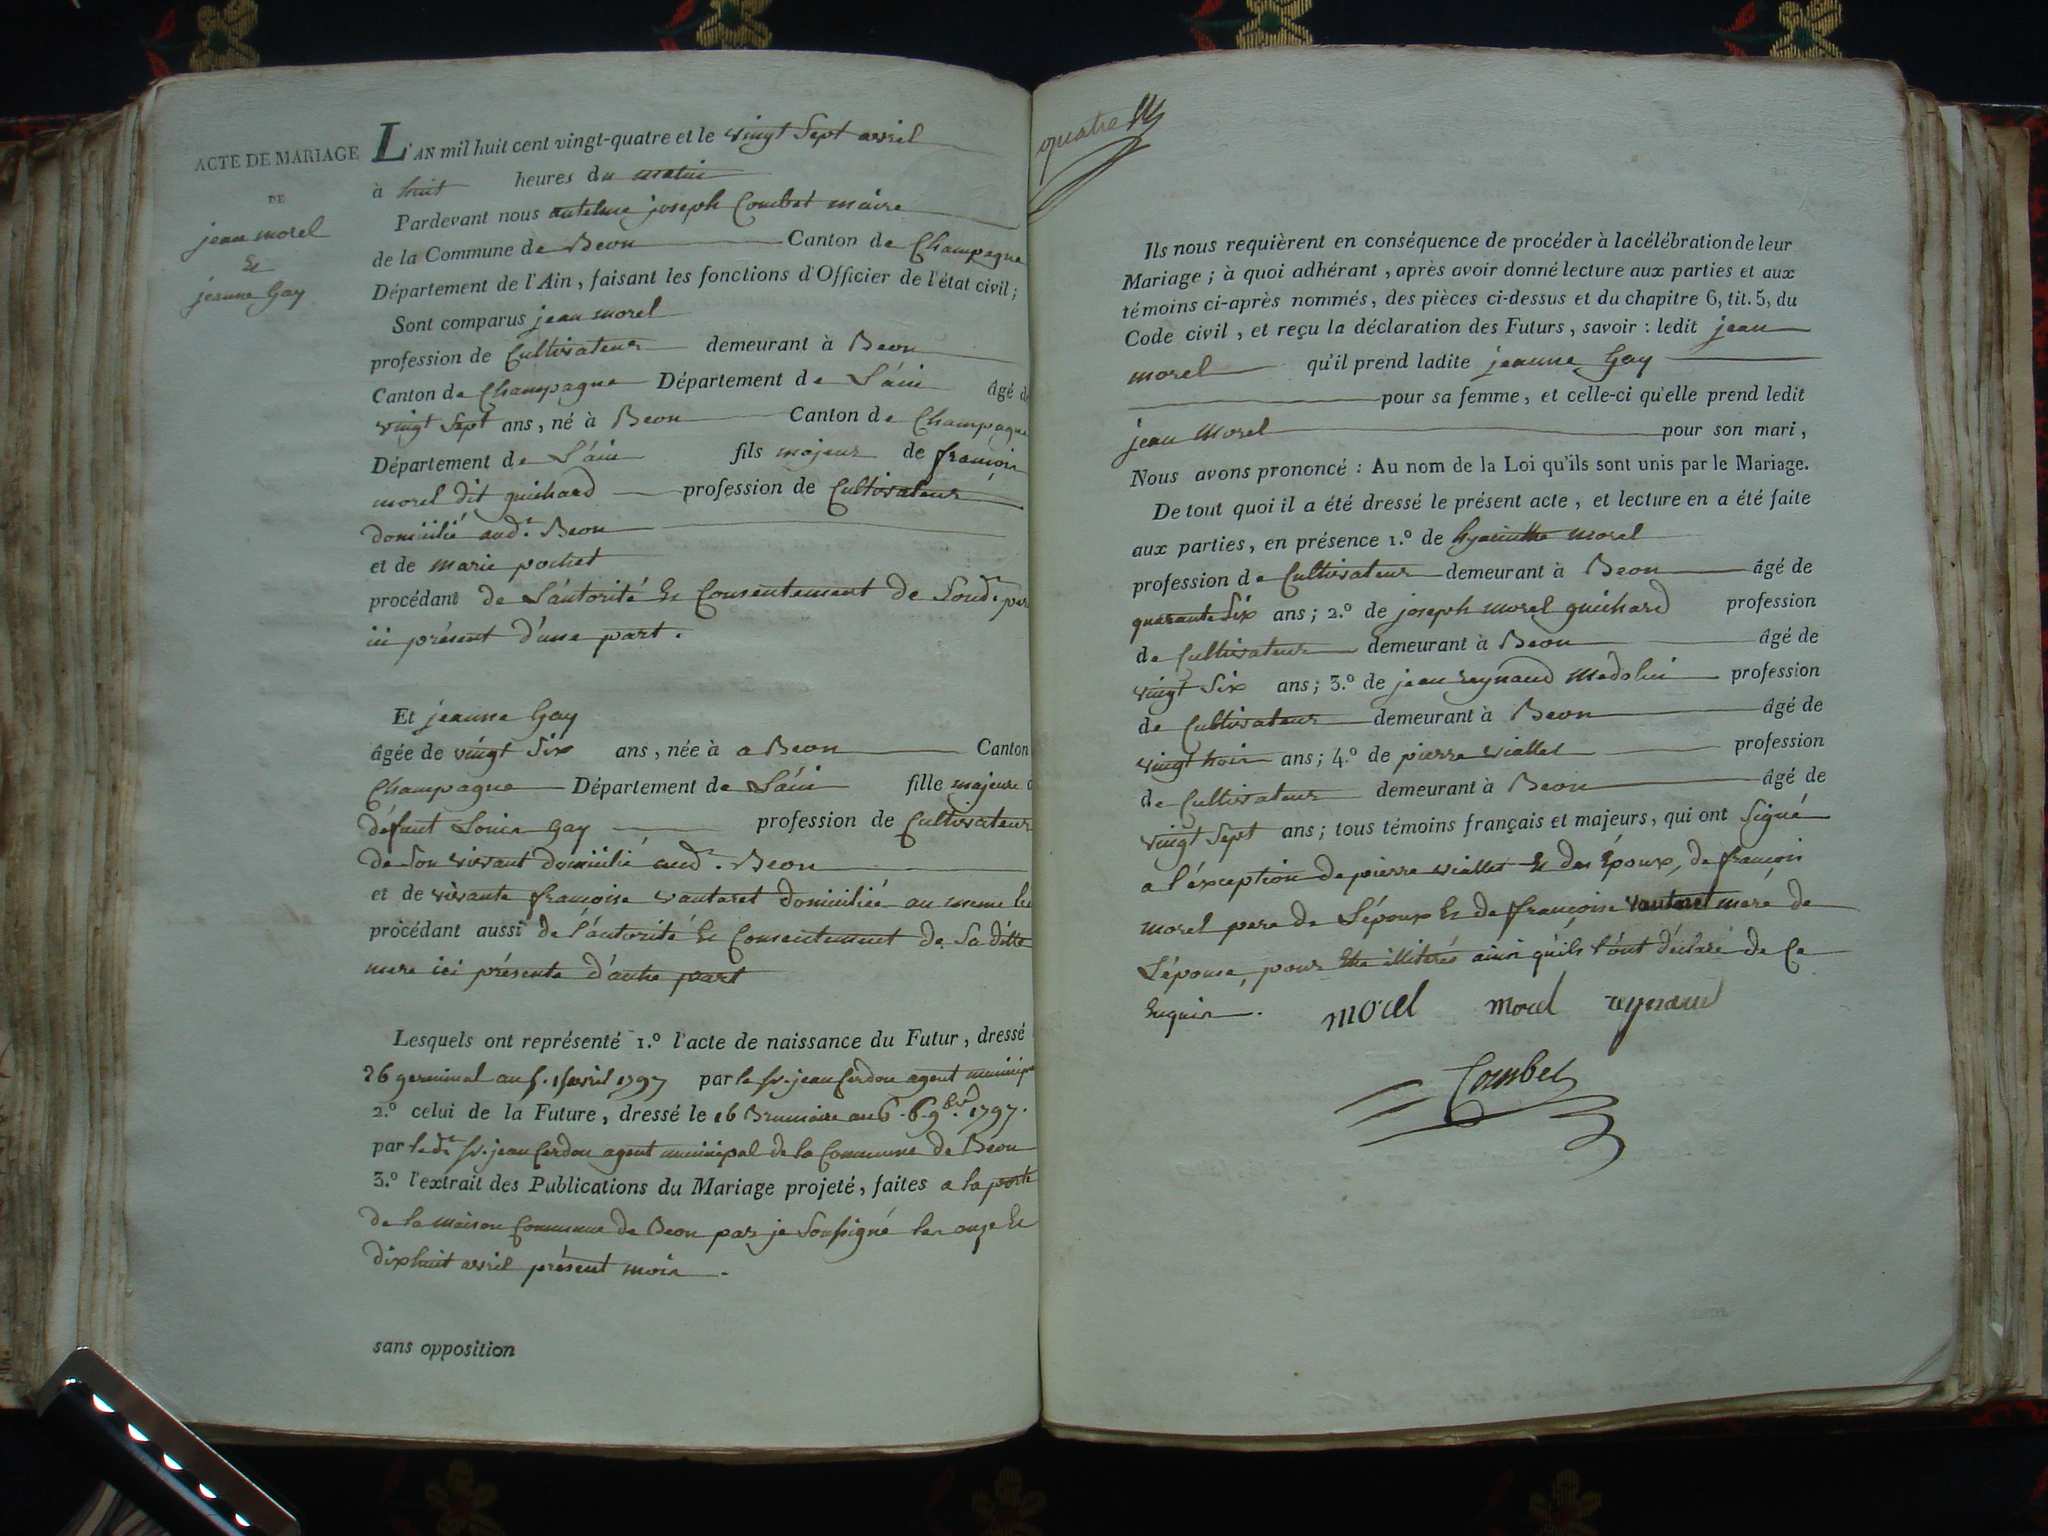 ACTE DE MARIAGE
DE
jean morel
Et
jeanne Gay
L'AN mil huit cent vingt-quatre et le vingt Sept avril
à huit heures du matin
Pardevant nous antelme joseph Combet maire
de la Commune de Beon Canton de Champagne
Département de l'Ain, faisant les fonctions d'Officier de l'état civil;
Sont comparus jean morel
profession de Cultivateur demeurant à Beon
Canton de Champagne Département de L'ain âgé de
vingt Sept ans, né à Beon Canton de Champagne
Département de L'ain fils majeur de françois
morel dit guichard profession de Cultivateur
domicilié aud.t Beon
et de marie pochet
procédant de L'autorité Et Consentement de Sond.t per
ici présent d'une part.
Et jeanne Gay
âgée de vingt Six ans, née à a Beon Canton
Champagne Département de L'ain fille majeure d
défunt Louis Gay profession de Cultivateur
de Son vivant domicilié aud.t Beon
et de vivante françoise vautaret domiciliée au meme lie
procédant aussi de l'autorité Et Consentement de Sa ditte
mere ici présente d'autre part
Lesquels ont représenté 1.º l'acte de naissance du Futur, dressé
26 germinal an 5. 15 avril 1797 par le Sr. jean Cerdon agent municipa
2.º celui de la Future, dressé le 16 Brumaire an 6. 6. 9bre 1797.
par le dt Sr. jean Cerdon agent municipal de la Commune de Béon
3.º l'extrait des Publications du Mariage projeté, faites a la porte
de la maison Commune de Beon par je Soussigné les onze Et
dixhuit avril présent mois.
sans opposition
quatre
Ils nous requièrent en conséquence de procéder à la célébration de leur
Mariage; à quoi adhérant, après avoir donné lecture aux parties et aux
témoins ci-après nommés, des pièces ci-dessus et du chapitre 6, tit. 5, du
Code civil, et reçu la déclaration des Futurs, savoir: ledit jean
morel qu'il prend ladite jeanne Gay
pour sa femme, et celle-ci qu'elle prend ledit
jean Morel pour son mari,
Nous avons prononcé: Au nom de la Loi qu'ils sont unis par le Mariage.
De tout quoi il a été dressé le présent acte, et lecture en a été faite
aux parties, en présence 1.º de hyacinthe morel
profession de Cultivateur demeurant à Beon âgé de
quarante Six ans; 2.º de joseph morel guichard profession
de Cultivateur demeurant à Beon âgé de
vingt Six ans; 3.º de jean reynaud Medolin profession
de Cultivateur demeurant à Beon âgé de
vingt trois ans; 4.º de pierre viallet profession
de Cultivateur demeurant à Beon âgé de
vingt Sept ans; tous témoins français et majeurs, qui ont Signé
a l'exception de pierre viallet Et des Époux, de françois
morel pere de L'époux Et de françoise vautaret mere de
L'épouse, pour Etre illiterés ainsi qu'ils l'ont déclaré de Ce
Enquis.
morel morel reynaud
Combet